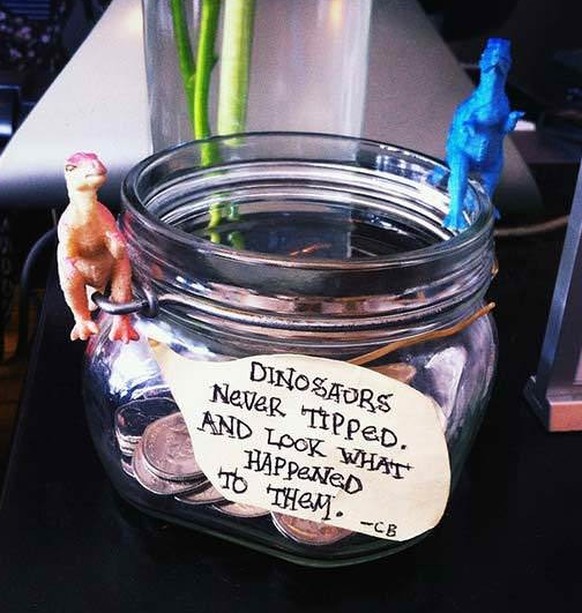 DINOSAURS
NEVER TIPPED.
AND LOOK WHAT
HAPPENED
TO THEM.
-CB